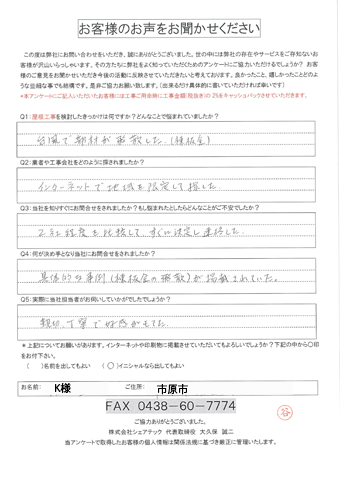 お客様のお声をお聞かせください
この度は弊社にお問い合わせをいただき、誠にありがとうございました。世の中には弊社の存在やサービスをご存知ないお
客様が沢山いらっしゃいます。その方たちに弊社をよく知っていただくためのアンケートにご協力いただけるでしょうか?お客
様のご意見をお聞かせいただき今後の活動に反映させていただきたいと考えております。良かったこと、嬉しかったことどのよ
うな些細な事でも結構です。是非ご協力お願い致します。(出来るだけ具体的に書いていただければ幸いです)
*本アンケートにご記入いただいたお客様には工事ご用命時に工事金額(税抜き)の2%をキャッシュバックさせていただきます。
Q1:屋根工事を検討したきっかけは何ですか?どんなことで悩まれていましたか?
台風で部材が飛散した。(棟板金)
Q2:業者や工事会社をどのように探されましたか?
インターネットで地域を限定して探した。
Q3:当社を知りすぐにお問合せをされましたか?もし悩まれたとしたらどんなことがご不安でしたか?
2社程度を比較して、すぐに決定し連絡した。
Q4:何が決め手となり当社にお問合せをされましたか?
具体的な事例(棟板金の飛散)が掲載されていた。
Q5:実際に当社担当者がお伺いしていかがでしたでしょうか?
親切、丁寧で好感がもてた。
*上記についてお願いがあります。インターネットや印刷物に掲載させていただいてもよろしいでしょうか?下記の中から〇印
をお付下さい。
( )名前を出してもよい (○)イニシャルなら出してもよい
お名前: K様 ご住所: 市原市
FAX 0438-60-7774
ご協力ありがとうございました。
株式会社シェアテック 代表取締役 大久保 誠二
当アンケートで取得したお客様の個人情報は関係法規に基づき厳正に管理いたします。